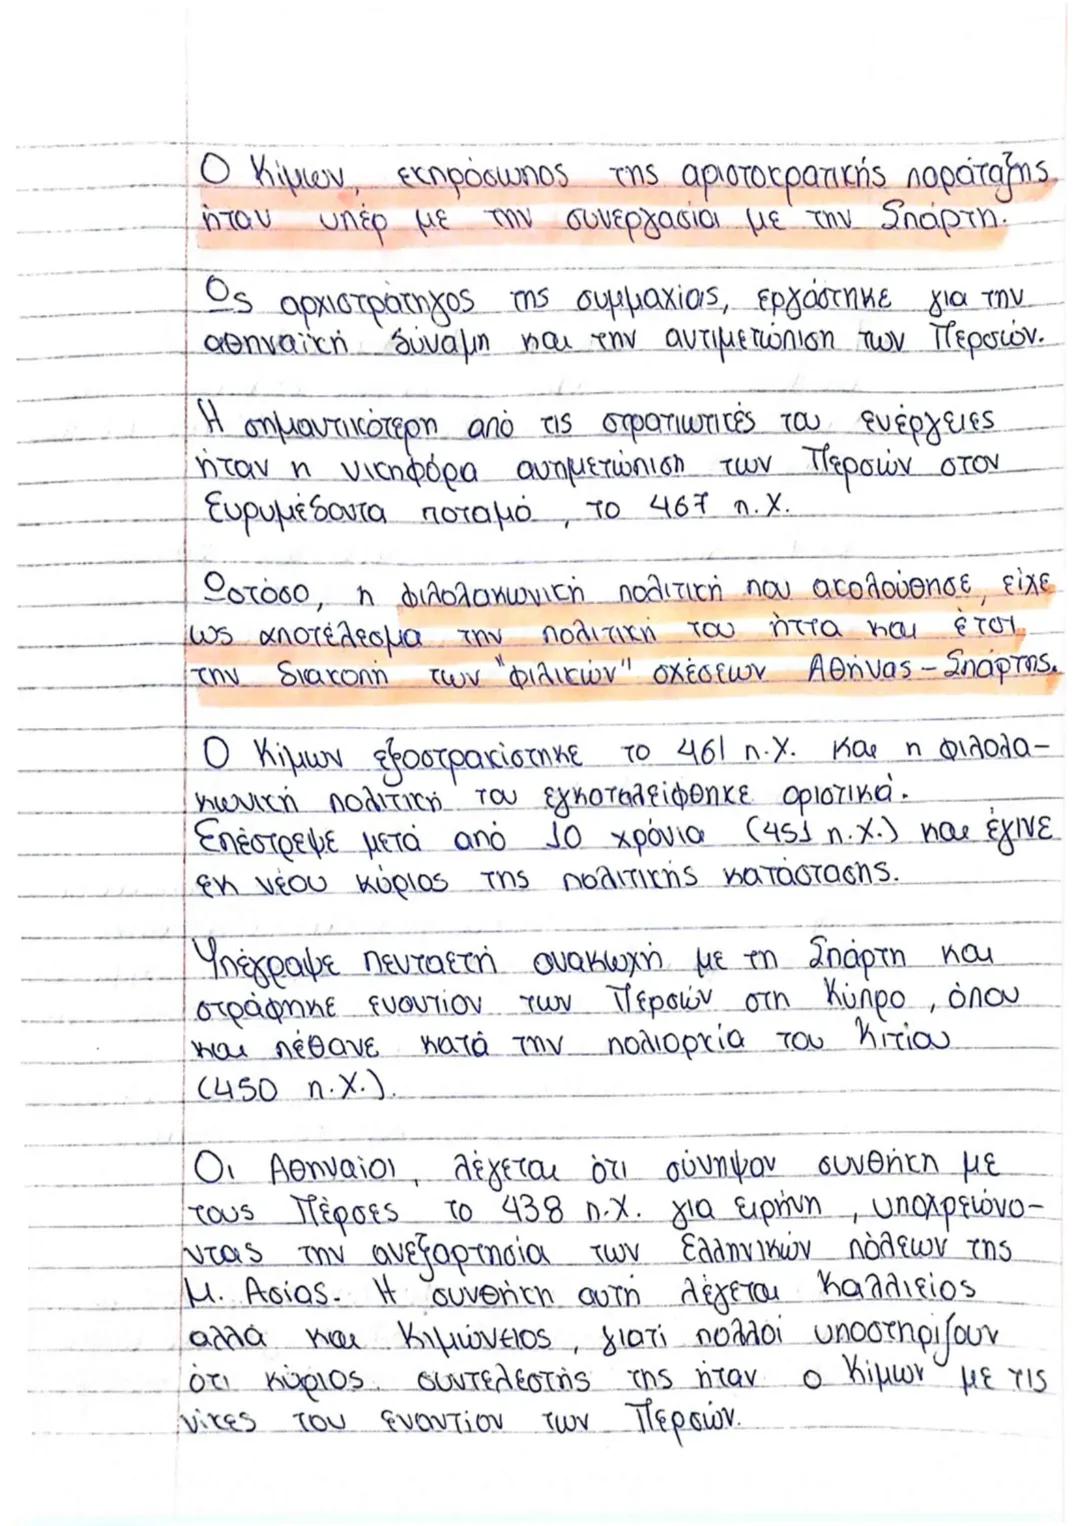 Ο Κίμων, εκπρόσωπος της αριστοκρατικής παράταξης
ήταν υπέρ με την συνεργασία με την Σπάρτη.
Ως αρχιστράτηγος της συμμαχίας, εργάστηκε για την
αθηναϊκή δύναμη και την αντιμετώπιση των Περσών.
Η σημαντικότερη από τις στρατιωτικές του ενέργειες
ήταν η νικηφόρα αντιμετώπιση των Περσών στον
Ευρυμέδοντα ποταμό, το 467 π.Χ.
Ωστόσο, η φιλολακωνική πολιτική που ακολούθησε, είχε
ως αποτέλεσμα την πολιτική του ήττα και έτσι
την διακοπή των "φιλικών" σχέσεων Αθήνας - Σπάρτης.
Ο Κίμων εξοστρακίστηκε το 461 π.Χ. και η φιλολα-
κωνική πολιτική του εγκαταλείφθηκε οριστικά.
Επέστρεψε μετά από 10 χρόνια (451 π.Χ.) και έγινε
εκ νέου κύριος της πολιτικής κατάστασης.
Υπέγραψε πενταετή ανακωχή με τη Σπάρτη και
στράφηκε εναντίον των Περσών στη Κύπρο, όπου
και πέθανε κατά την πολιορκία του Κιτίου
(450 π.Χ.).
Οι Αθηναίοι, λέγεται ότι σύνηψαν συνθήκη με
τους Πέρσες το 438 π.Χ. για ειρήνη, υποχρεώνο-
ντας την ανεξαρτησία των Ελληνικών πόλεων της
Μ. Ασίας. Η συνθήκη αυτή λέγεται Καλλιείος
αλλά και Κιμώνειος, γιατί πολλοί υποστηρίζουν
ότι κύριος συντελεστής της ήταν ο Κίμων με τις
νίκες του εναντίον των Περσών.